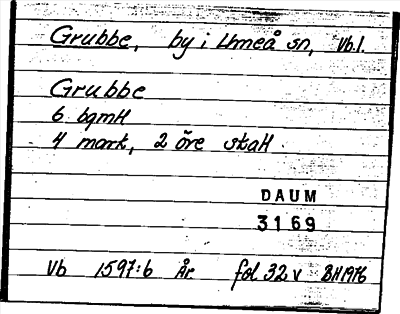 Grubbe, by i Umeå sn, Vb.l.
Grubbe
6 bgmH
4 mark, 2 öre skaH.
DAUM
3169
Vb 1597:6 År fol 32 v BH1976